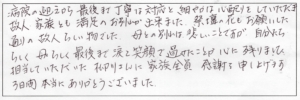 病院の迎えから最後まで丁寧な対応と細やかな心配りをしていただき
故人、家族とも満足のお別れが出来ました。祭壇の花もお願いした
通りの故人らしい物でした。母との別れは悲しいことですが、自分たち
らしく母らしく最後まで涙と笑顔で過せたことが心に残りました
担当していただいた 様に家族全員、感謝を申し上げます
3日間本当にありがとうございました。